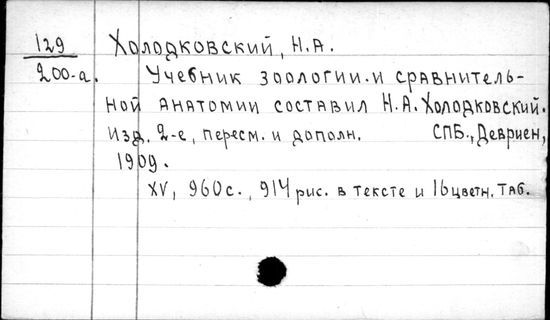 129 Холодковский, Н.А.
200-а. Учебник зоологии и сравнитель-
ной анатомии составил Н.А. Холодковский.
Изд. 2-е, пересм. и дополн. СПБ., Девриен,
1909.
XV, 960 с., 914 рис. в тексте и 16 цветн. таб.